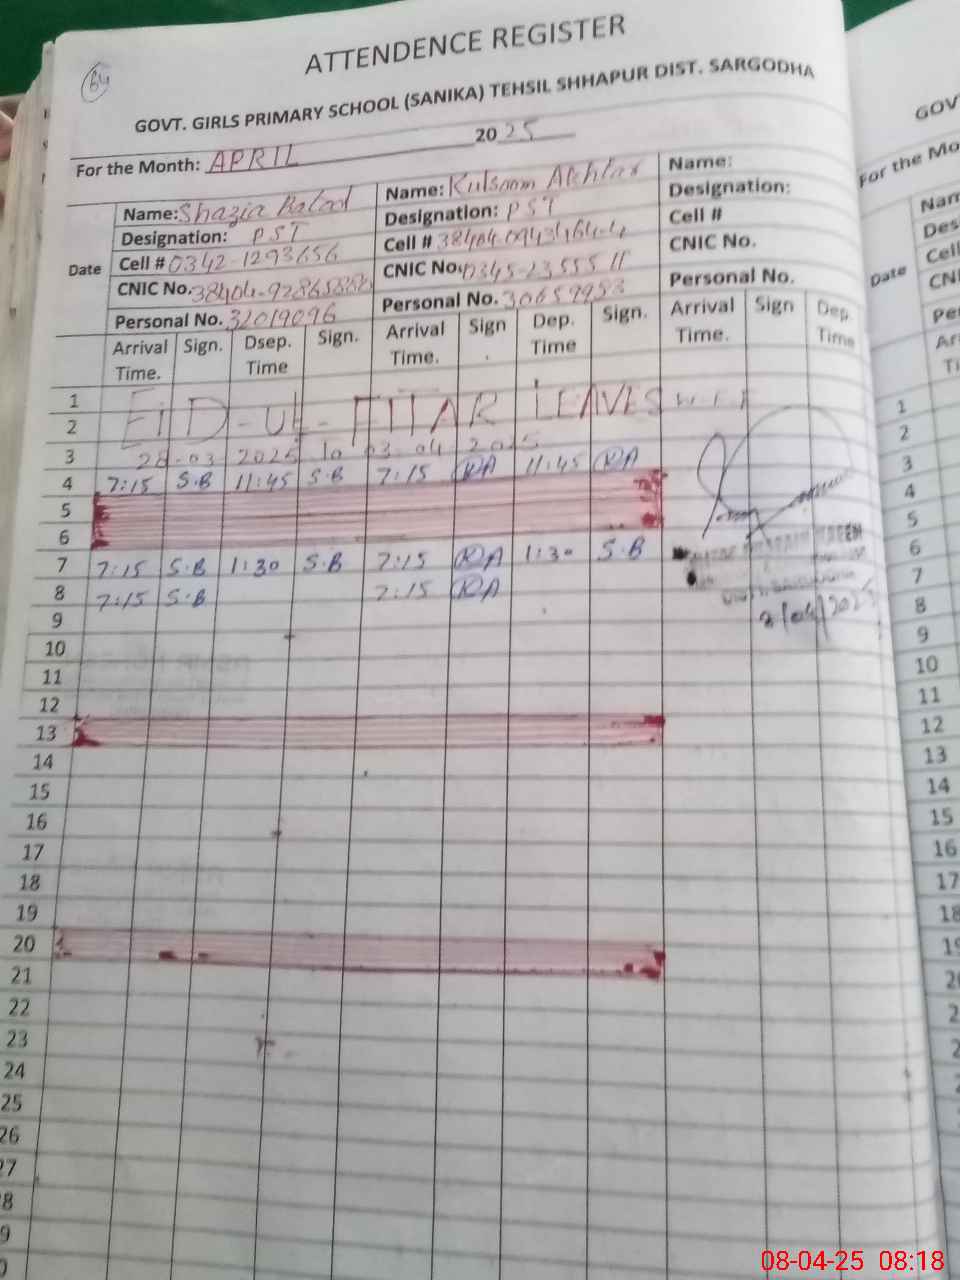 84
ATTENDENCE REGISTER
GOVT. GIRLS PRIMARY SCHOOL (SANIKA) TEHSIL SHHAPUR DIST. SARGODHA
For the Month: APRIL 2025
Date
Name: Shazia
Designation: PST
Cell # 0342-1293656
CNIC No.
Personal No. 32019096
Name: Kulsoom Akhtar
Designation: PST
Cell #
CNIC No. 0345-2355511
Personal No.
Name:
Designation:
Cell #
CNIC No.
Personal No.
Arrival Time. Sign. Dsep. Time Sign. Arrival Time. Sign Dep. Time Sign. Arrival Time. Sign Dep. Time
1
2 EID-UL-FITAR LEAVES
3 28-03 2025 to 03.04 2025
4 7:15 S.B 11:45 S.B 7:15 KA 11:45 KA
5
6
7 7:15 S.B 1:30 S.B 7:15 KA 1:30 S.B
8 7:15 S.B 7:15 KA
9
10
11
12
13
14
15
16
17
18
19
20
21
22
23
24
25
26
27
8
9
0
GOV
For the Mo
Date
Nam
Des
Cell
CN
Pe
Ar
Ti
1
2
3
4
5
6
7
8
9
10
11
12
13
14
15
16
17
18
19
20
2
08-04-25 08:18